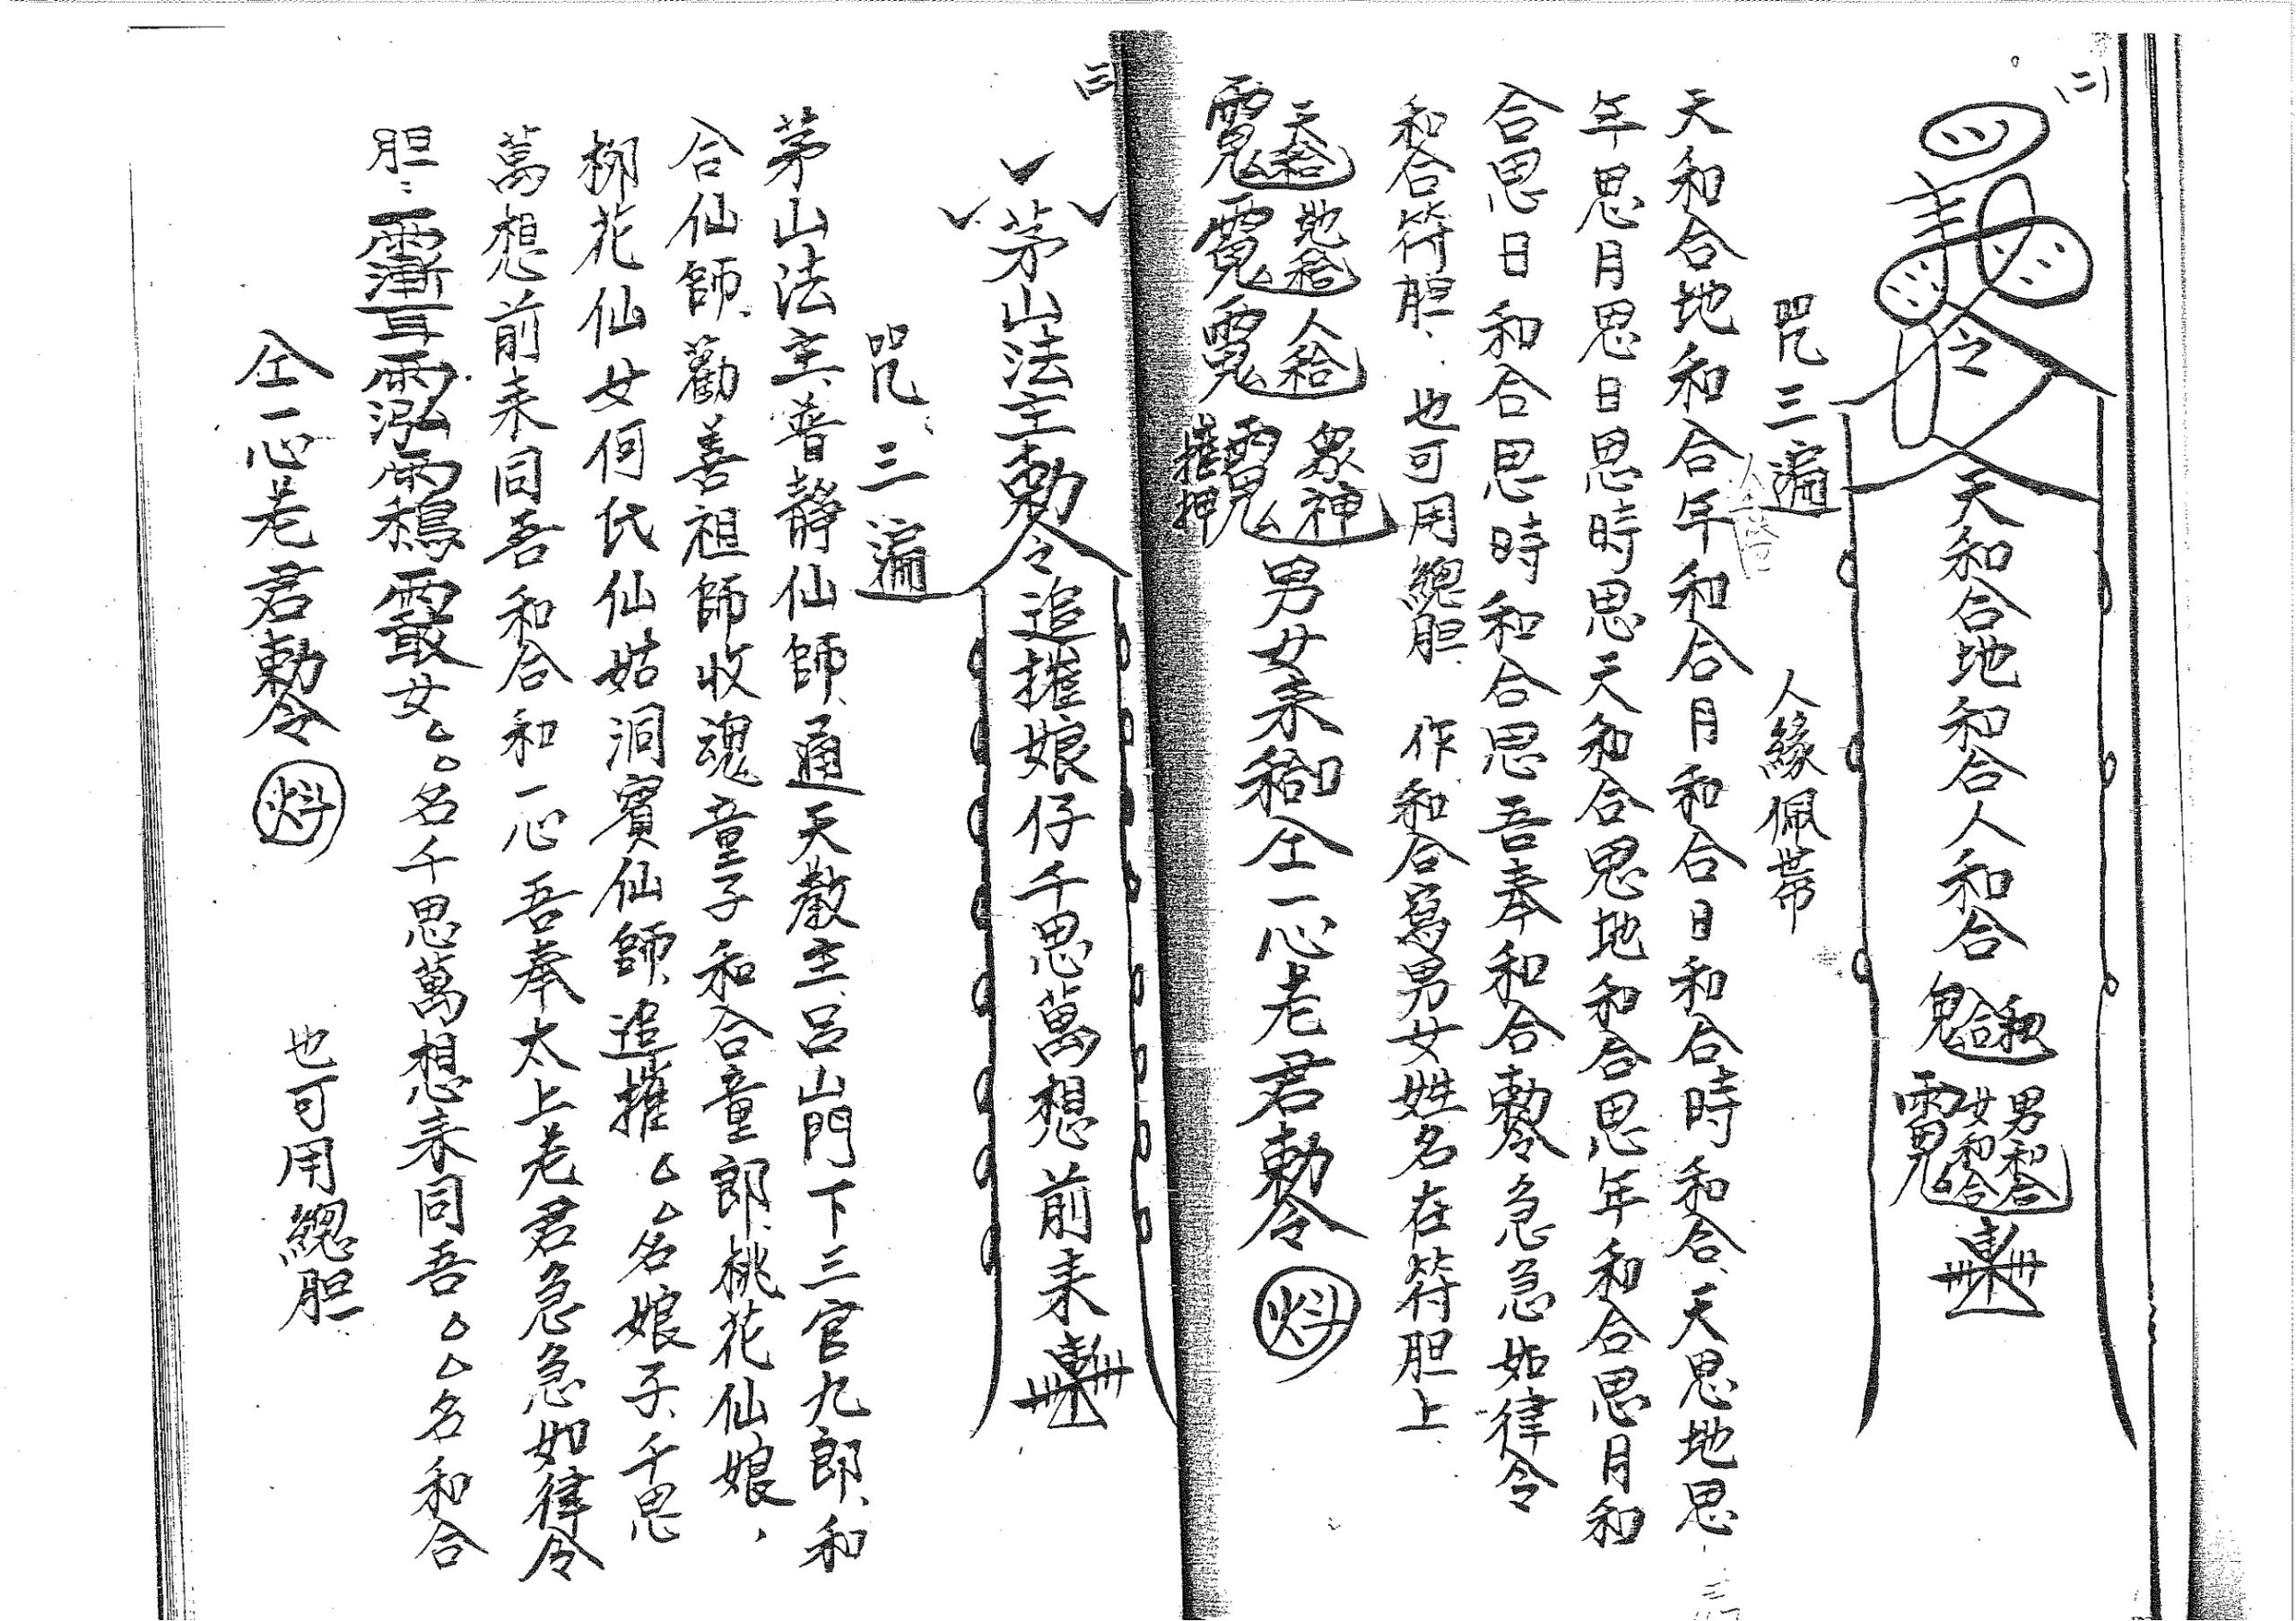 (二)
令
天和合地和合人和合
男和合
女和合
咒三遍 人緣佩帶
天和合地和合年和合月和合日和合時和合、天思地思
年思月思日思時思天和合思地和合思年和合思月和
合思日和合思時和合思吾奉和合勅令急急如律令
和合符胆、也可用總胆、作和合寫男女姓名在符胆上
男女来 仝一心老君勅令
(三)
茅山法主勅令追摧娘仔千思萬想前来
咒、三遍
茅山法主、普静仙師、通天教主、呂山門下三官九郎、和
合仙師、勸善祖師收魂童子和合童郎、桃花仙娘、
柳花仙女何氏仙姑洞賓仙師、追摧△△名娘子、千思
萬想前来同吾和合和一心吾奉太上老君急急如律令
胆: 女△△名千思萬想来同吾△△名和合
仝一心老君勅令 也可用總胆